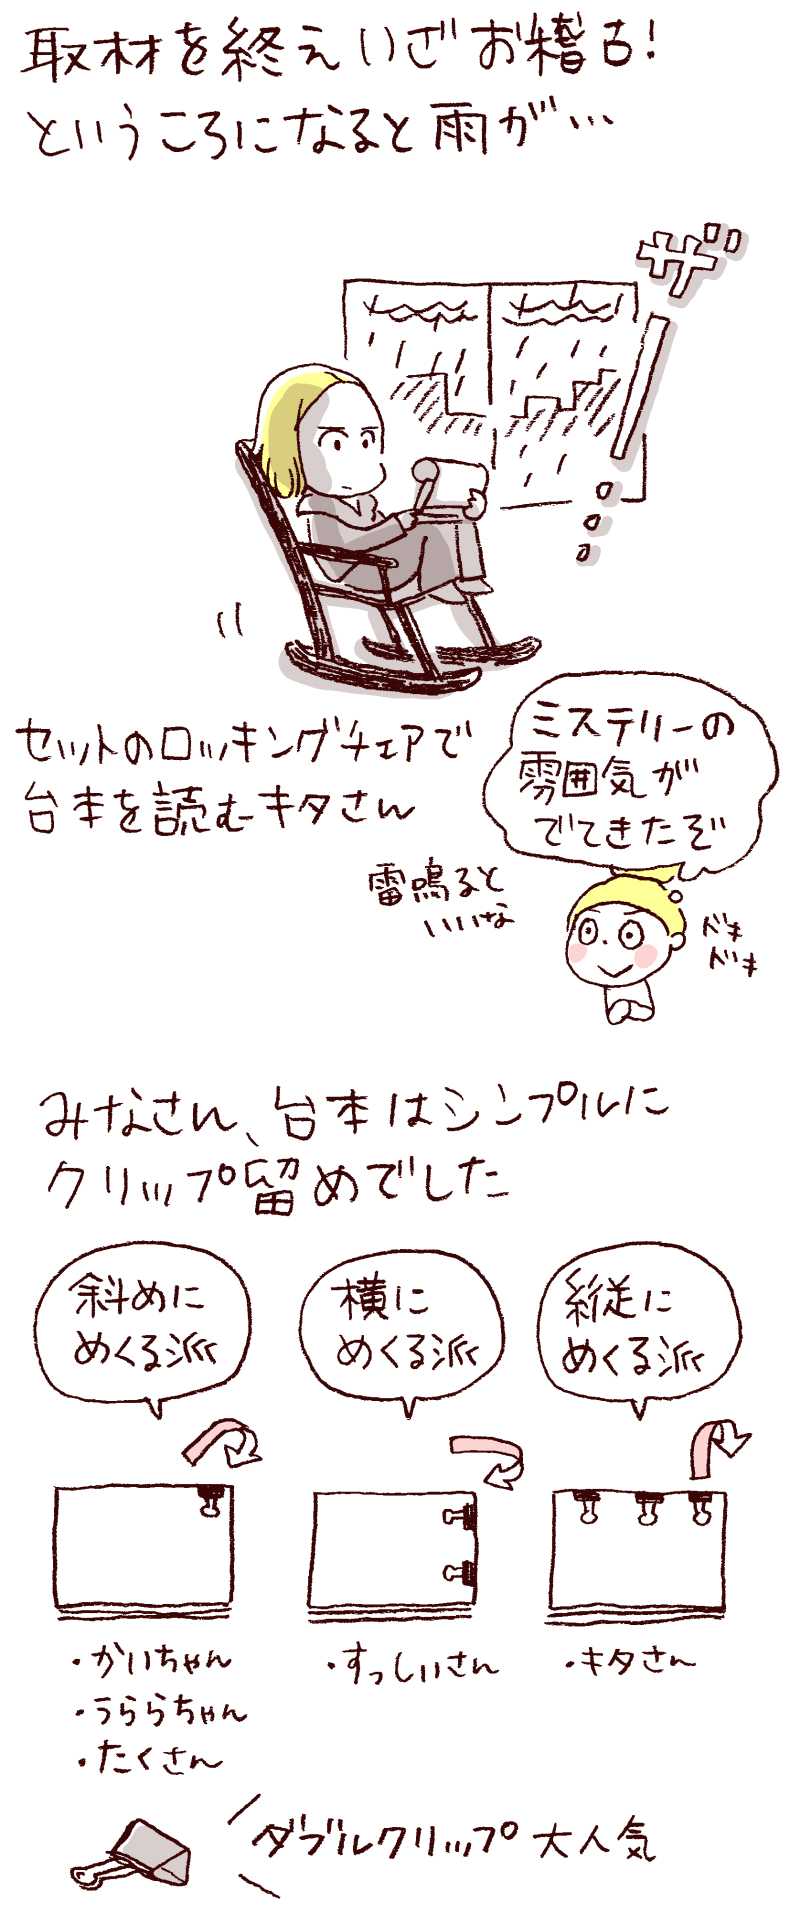 取材を終えいざお稽古！
というころになると雨が…
ザー…
セットのロッキングチェアで
台本を読むキタさん
ミステリーの
雰囲気が
でてきたぞ
雷鳴ると
いいな
ドキ
ドキ
みなさん、台本はシンプルに
クリップ留めでした
斜めに
めくる派
横に
めくる派
縦に
めくる派
・かいちゃん
・うららちゃん
・たくさん
・すっしぃさん
・キタさん
ダブルクリップ大人気